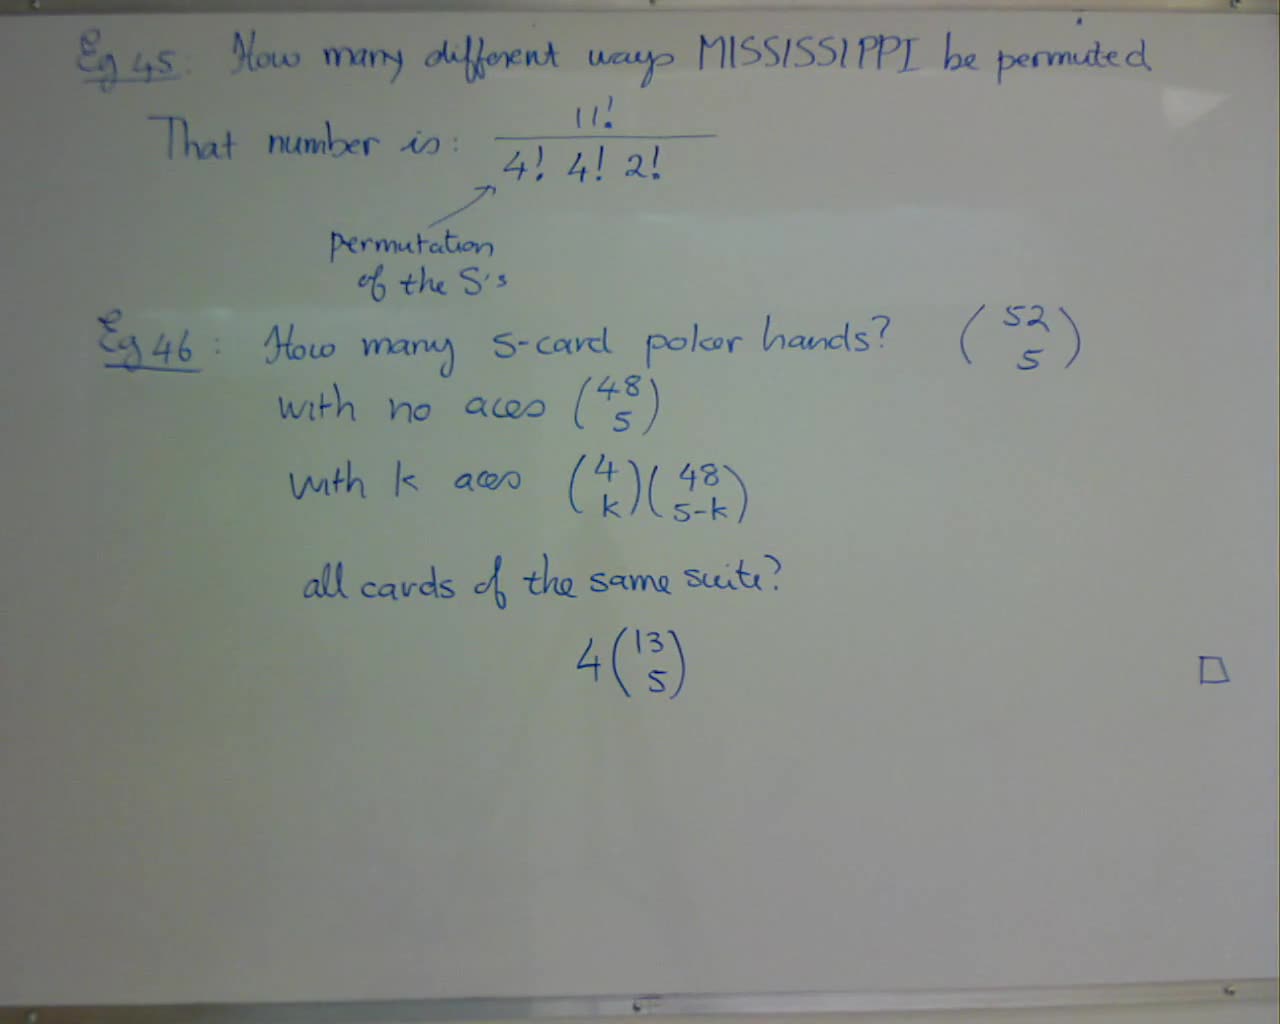 Eg 45: How many different ways MISSISSIPPI be permuted
That number is: 11! / 4! 4! 2!
permutation
of the S's
Eg 46: How many 5-card poker hands? (52 5)
with no aces (48 5)
with k aces (4 k)(48 5-k)
all cards of the same suite?
4(13 5)